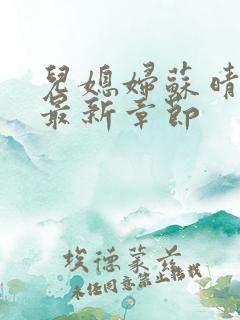 兒媳婦蘇晴
最新章節
埃德蒙並
未經同意禁止轉載